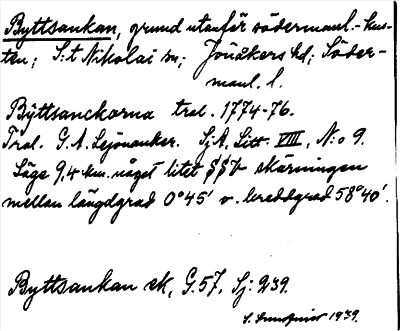 Byttsankan, grund utanför södermanl.-kus-
ten; S:t Nikolai sn; Jönåkers hd; Söder-
manl. l.
Byttsanckorna tral. 1774-76.
Tral. G. A. Lejonanker. SjA. Litt. VIII, N:o 9.
Läge 9,4 km. något litet SSV skärningen
mellan längdgrad 0°45' v. breddgrad 58°40'.
Byttsankan ek, G. 57, Sj: 239.
1939.